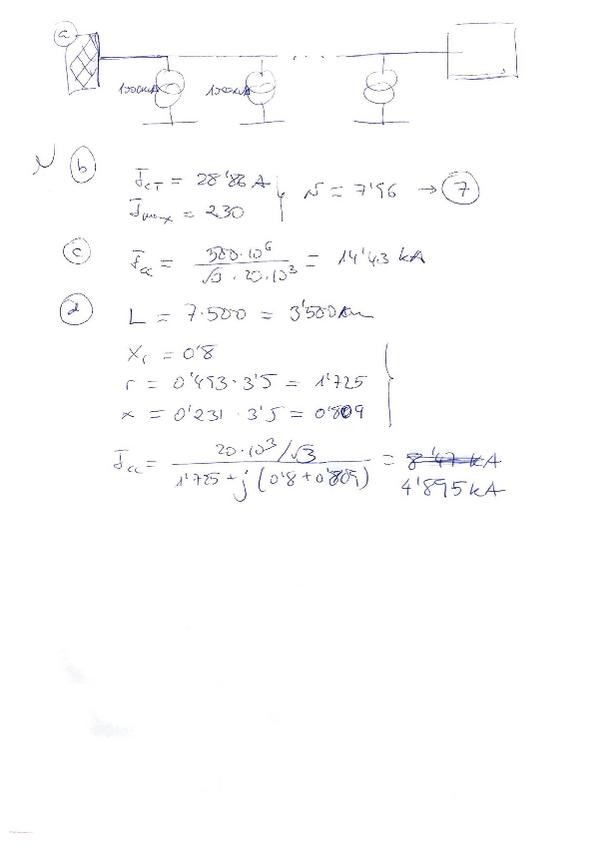 a
1000kVA 1000kVA
N b
I_CT = 28'86 A
N = 7'96 → 7
I_max = 230
c I_cc = 500·10⁶ / √3 · 20·10³ = 14'43 kA
d L = 7·500 = 3'500 km
X_r = 0'8
r = 0'493·3'5 = 1'725
x = 0'231 · 3'5 = 0'809
I_cc = 20·10³/√3 / 1'725 + j (0'8 + 0'809) = 8'47 kA
4'895 kA